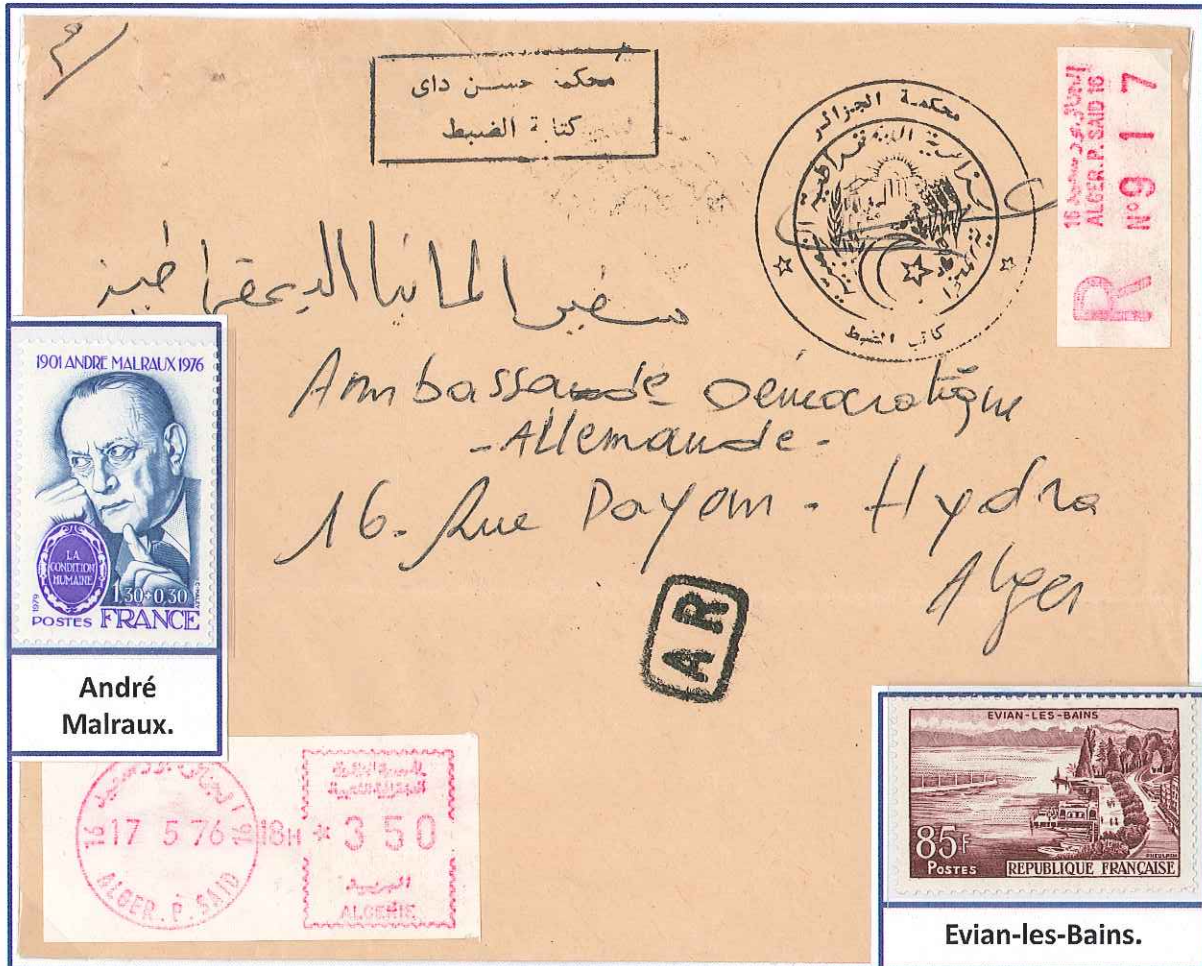 محكمة حسن داي
كتابة الضبط
محكمة الجزائر
كاتب الضبط
16 الجزائر بورسعيد 16
ALGER.P. SAID 16
R N°9 1 7
سفير المانيا الديمقراطية
Ambassade Démocratique
-Allemande-
16. Rue Dayem - Hydra
Alger
AR
1901 ANDRE MALRAUX 1976
LA
CONDITION
HUMAINE
1,30+0,30
1979
POSTES FRANCE
André
Malraux.
16 17 5 76 16 18H * 3 5 0
ALGER.P. SAID
البريد
ALGERIE
EVIAN-LES-BAINS
85F
POSTES REPUBLIQUE FRANÇAISE
Evian-les-Bains.